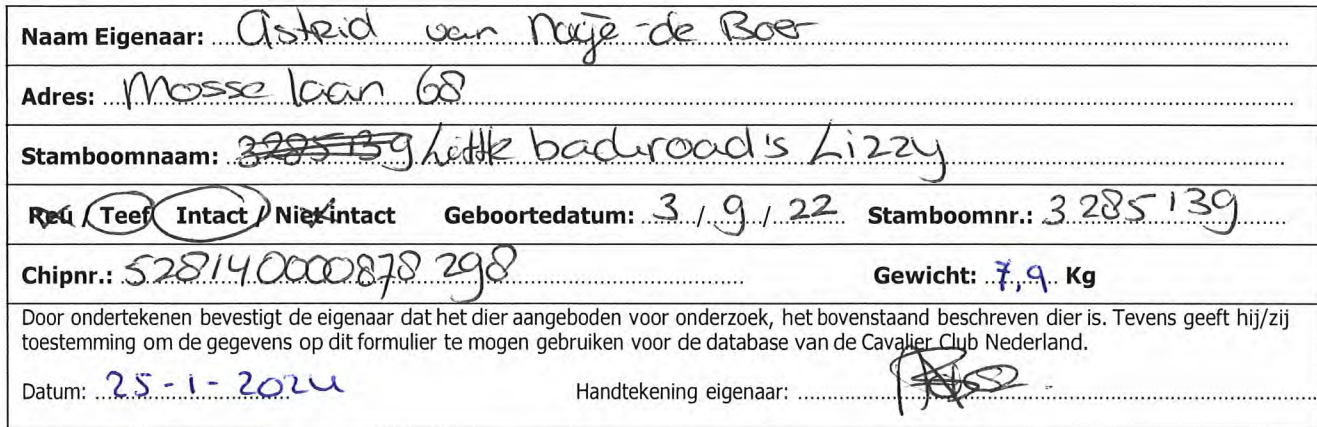 Naam Eigenaar: Astrid van Maije-de Boer
Adres: Mosselaan 68
Stamboomnaam: 3285139 Little backroad's Lizzy
Reu / Teef Intact / Niet intact Geboortedatum: 3 / 9 / 22 Stamboomnr.: 3285139
Chipnr.: 528140000878298 Gewicht: 7,9 Kg
Door ondertekenen bevestigt de eigenaar dat het dier aangeboden voor onderzoek, het bovenstaand beschreven dier is. Tevens geeft hij/zij
toestemming om de gegevens op dit formulier te mogen gebruiken voor de database van de Cavalier Club Nederland.
Datum: 25-1-2024 Handtekening eigenaar: